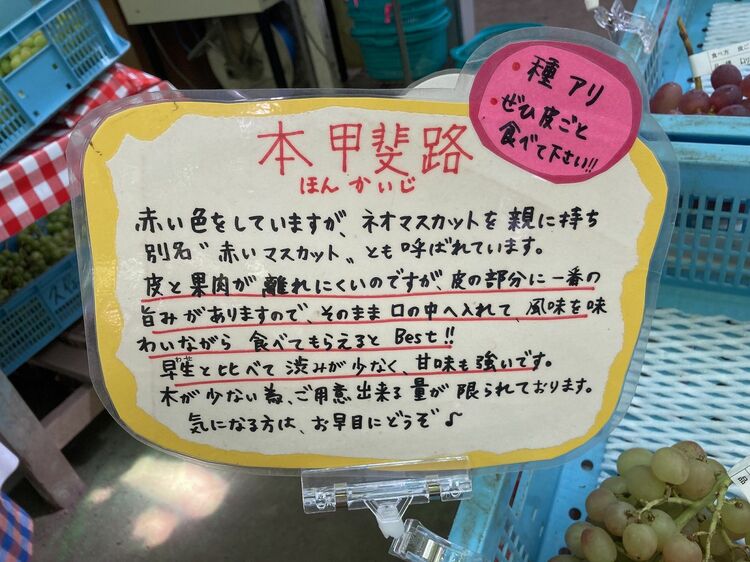 ・種アリ
・ぜひ皮ごと
食べて下さい!!
本甲斐路
ほんかいじ
赤い色をしていますが、ネオマスカットを親に持ち
別名〝赤いマスカット〟とも呼ばれています。
皮と果肉が離れにくいのですが、皮の部分に一番の
旨みがありますので、そのまま口の中へ入れて、風味を味
わいながら食べてもらえると Best!!
早生と比べて渋みが少なく、甘味も強いです。
木が少ない為、ご用意出来る量が限られております。
気になる方は、お早目にどうぞ♪
食べ方